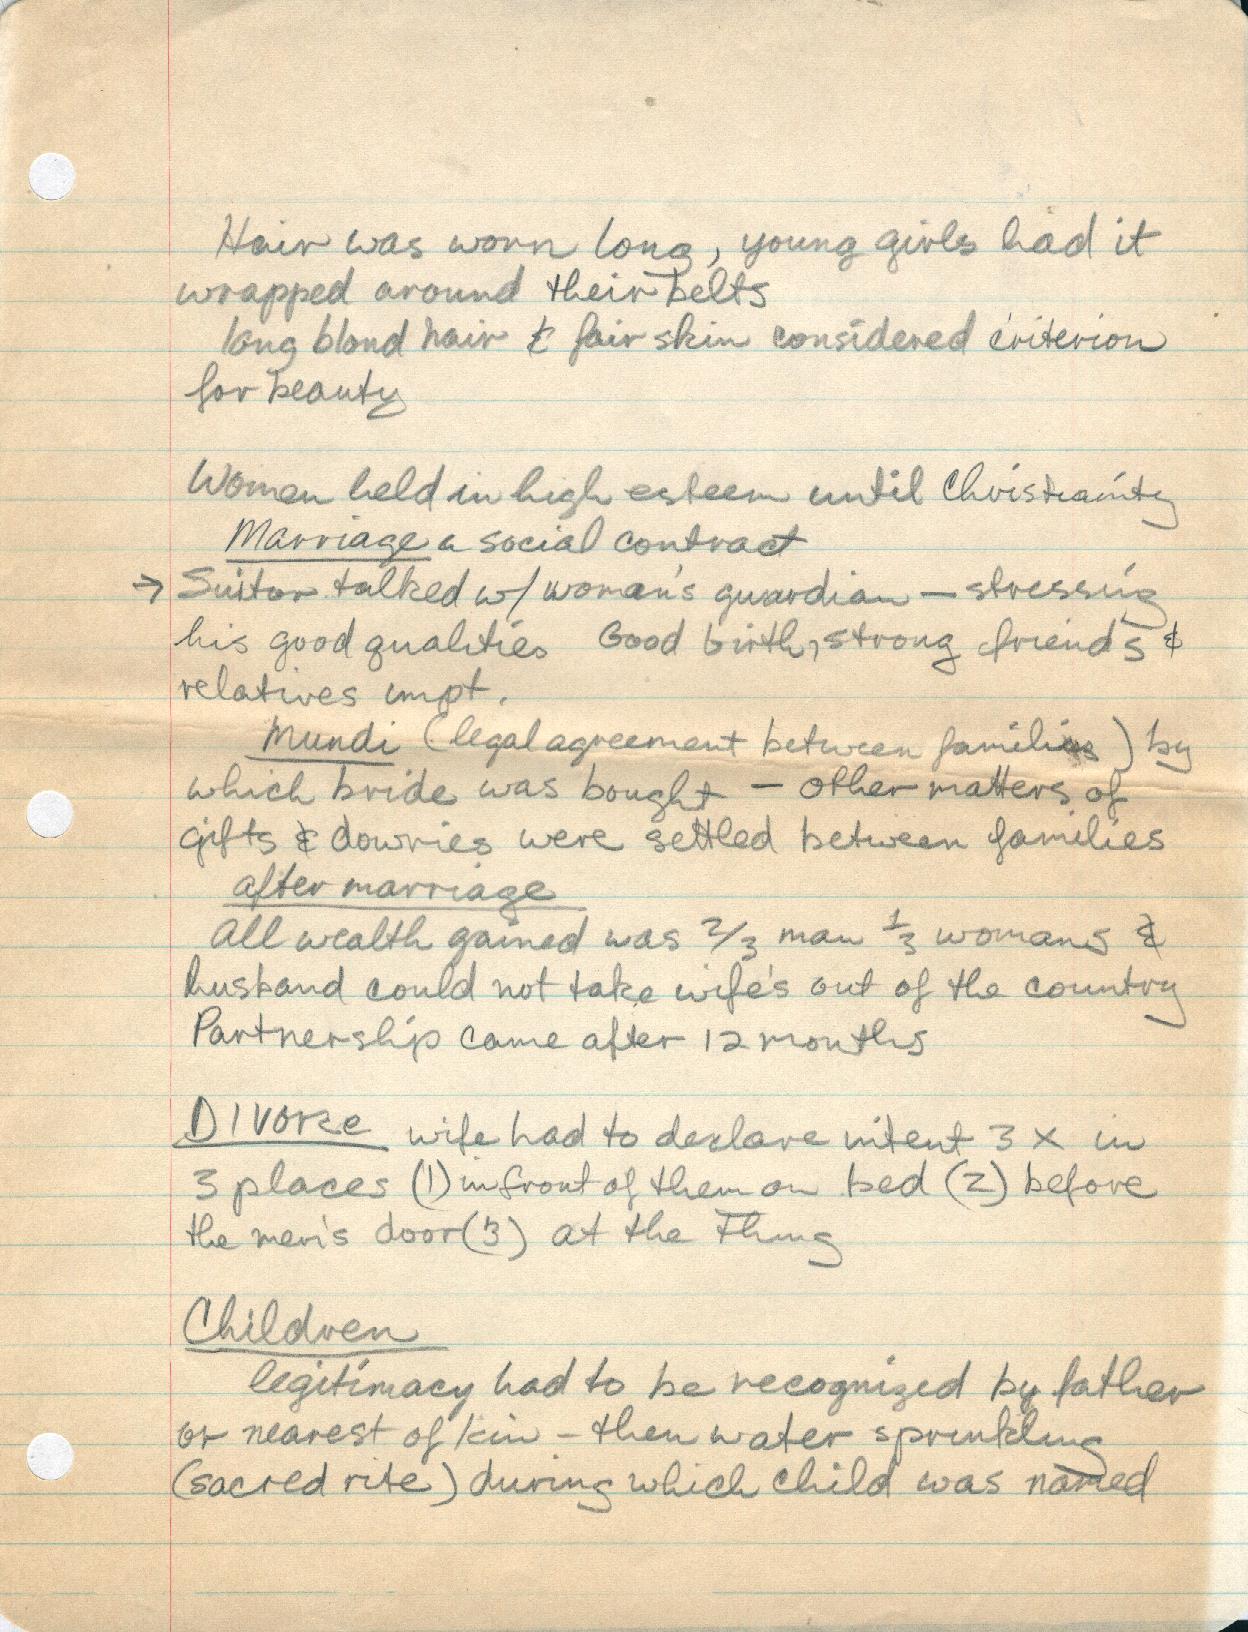 Hair was worn long, young girls had it
wrapped around their belts
long blond hair & fair skin considered criterion
for beauty
Women held in high esteem until Christianity
Marriage a social contract
→ Suitor talked w/ woman's guardian — stressing
his good qualities Good birth, strong friends &
relatives impt.
Mundi (legal agreement between families) by
which bride was bought — other matters of
gifts & dowries were settled between families
after marriage
All wealth gained was 2/3 man 1/3 womans &
husband could not take wife's out of the country
Partnership came after 12 months
Divorce wife had to declare intent 3 x in
3 places (1) in front of them on bed (2) before
the men's door (3) at the Thing
Children
legitimacy had to be recognized by father
or nearest of kin — then water sprinkling
(sacred rite) during which child was named